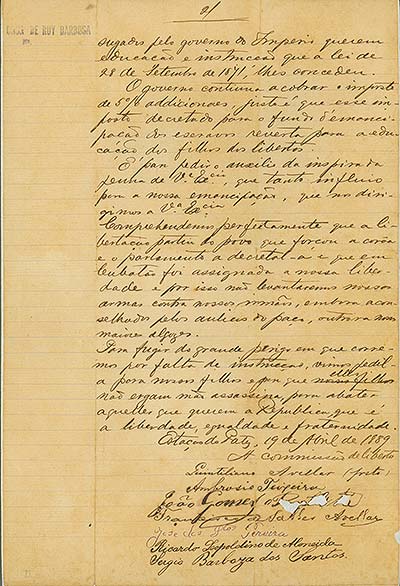 2/
CASA DE RUY BARBOSA
sugados pelo governo do Imperio querem
educação e instrucção que a lei de
28 de Setembro de 1871, lhes concedeu.
O governo continua a cobrar o imposto
de 5% addicionaes, justo é que esse im-
posto decretado para o fundo d'emanci-
pação dos escravos reverta para a edu-
cação dos filhos dos libertos.
É para pedir o auxilio da inspirada
penna de V.ª Ex.cia, que tanto influio
para a nossa emancipação, que nos diri-
gimos a V.ª Ex.cia
Comprehendemos perfeitamente que a li-
bertação partiu do povo que forçou a corôa
e o parlamento a decretal-a e que em
Cubatão foi assignada a nossa liber-
dade e por isso não levantaremos nossas
armas contra nossos irmãos, embora acon-
selhados pelos aulicos do paço, outrora nossos
maiores algozes.
Para fugir do grande perigo em que corre-
mos por falta de instrucção, vimos pedil-
a para nossos filhos e para que elles
não ergam mão assassina, para abater
aquelles que querem a Republica, que é
a liberdade, egualdade e fraternidade.
Estação do Paty, 19 de Abril de 1889
A commissão de libertos
Quintiliano Avellar (preto)
Ambrosio Teixeira
João Gomes
Francisco de Salles Avellar
José dos Stos Pereira
Ricardo Leopoldino de Almeida
Sergio Barboza dos Santos.